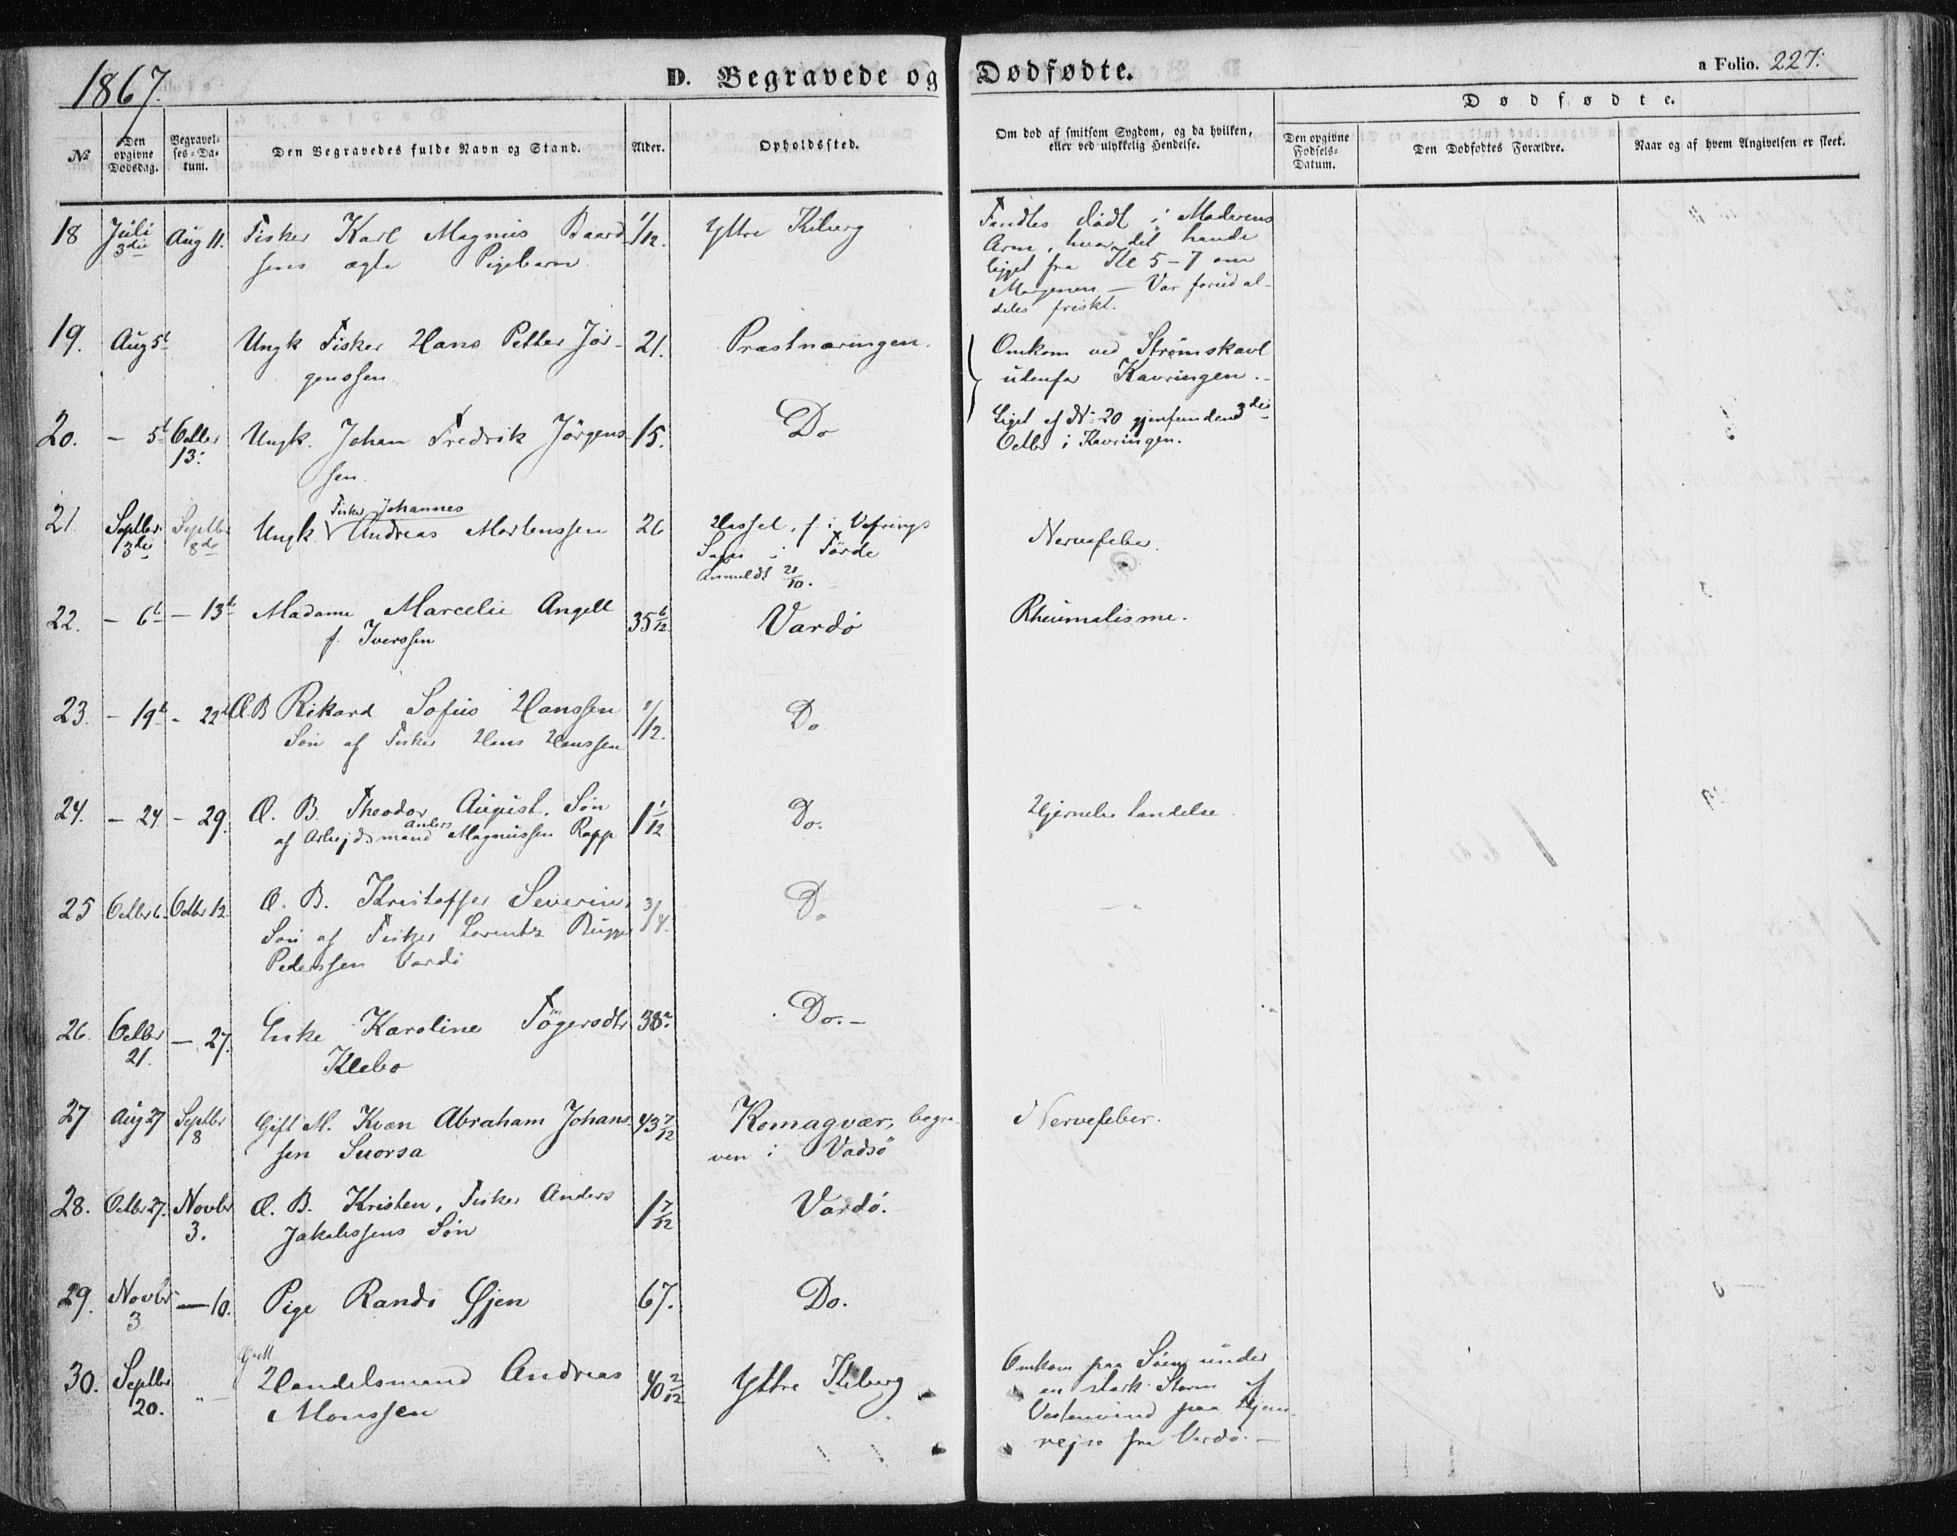 1867.
D. Begravede og Dødfødte.
a Folio. 227.
No
Den opgivne Dødsdag.
Begravelses-Datum.
Den Begravedes fulde Navn og Stand.
Alder.
Opholdssted.
Om død af smitsom Sygdom, og da hvilken, eller ved ulykkelig Hendelse.
Dødfødte.
Den opgivne Fødsels-Datum.
Den Dødfødtes Forældre.
Naar og af hvem Angivelsen er skeet.
18 Juli 3die Aug 11. Fisker Karl Magnus Baard 1/12. Yttre Kiberg Fandtes dødt i Moderens
sens ægte Pigebarn Arm, hvor det havde
ligget fra Kl 5-7 om
Morgenen – Var forud al-
deles friskt.
19. Aug 5t Ungk Fisker Hans Petter Jør- 21. Præstnæringen. Omkom ved Strømskavl
genssen udenfor Kavringen.
20. – 5t Octbr 13. Ungk. Johan Fredrik Jørgens- 15. Do Liget af No 20 gjenfunden 3die
sen. Octbr i Kavringen.
21. Septbr 3die Septbr 8de Ungk. Fisker Johannes Andreas Mortenssen 26 Hassel, f. i Vefrings
Sogn i Førde Nervefeber.
Anmeldt 20/10.
22. – 6t – 13t Madame Marcelie Angell 35 6/12 Vardø Rheumatisme.
f. Iverssen
23. – 19t – 22t Æ.B. Rikard Sofus Hanssen 1/12. Do
Søn af Fisker Hans Hanssen
24. – 24 – 29. Æ. B. Theodor August, Søn 1 1/12 Do. Hjernebetændelse.
af Arbejdsmand Anders Magnussen Rapp
25 Octbr 6. Octbr 12 Æ. B. Kristoffer Severin, 3/4. Do
Søn af Fisker Lorentz
Pederssen Vardø
26. Octbr 21. – 27. Enke Karoline Tøgersdtr 38. Do. –
Klebo
27 Aug 27 Septbr 8 Gift M. Kvæn Abraham Johans- 43 7/12 Komagvær, begra- Nervefeber.
sen Suorsa ven i Vadsø
28. Octbr 27. Novbr 3. Æ. B. Kristen, Fisker Anders 1 7/12 Vardø.
Jakobssens Søn
29. Novbr 3 – 10. Pige Randi Øjen 67. Do.
30. Septbr 20. – Gift M
Handelsmand Andreas 40 2/12 Yttre Kiberg Omkom paa Søen under
Monssen en stærk Storm af
Vestenvind paa Hjem-
rejse fra Vardø. –